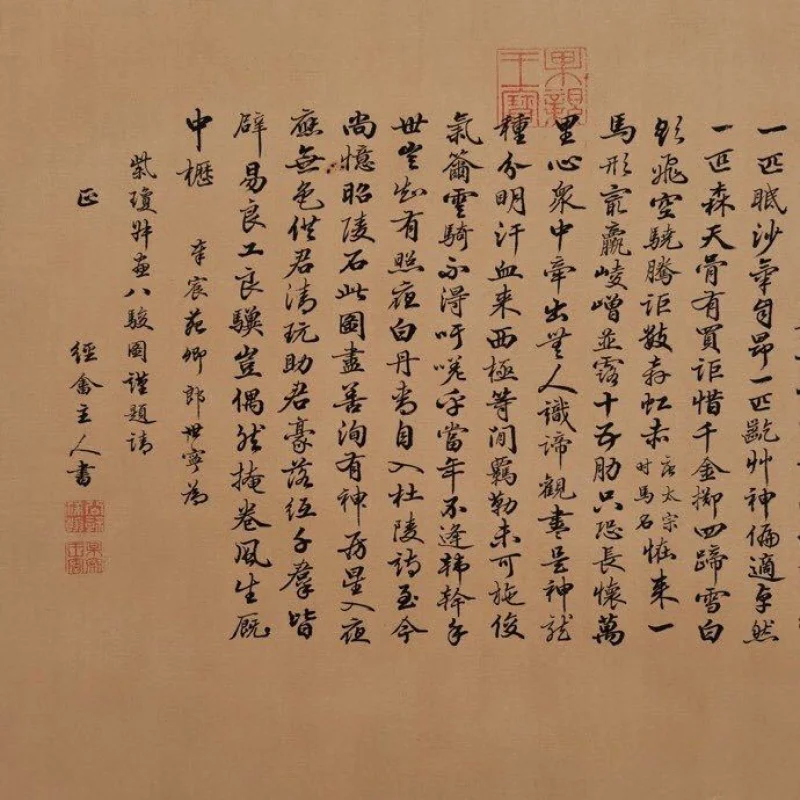 果親王寶
一匹眠沙氣自昂一匹齕艸神偏適卓然
一匹森天骨有買詎惜千金擲四蹄雪白
飛空驍騰詎數奔虹赤唐太宗時馬名恠來一
馬形㝡羸崚嶒並露十五肋只恐長懷萬
里心衆中牽出無人識諦觀盡是神龍
種分明汗血來西極等閒羈勒未可施俊
氣籋雲騎不得吁嗟乎當年不逢韓幹手
世豈知有照夜白丹青自入杜陵詩至今
尚憶昭陵石此圖盡善洵有神房星入夜
應無色供君清玩助君豪落紙千羣皆
辟易良工良驥豈偶然掩卷風生厩
中櫪 奉宸苑卿郎世寧為
紫瓊叔畫八駿圖謹題請
正
經畬主人書